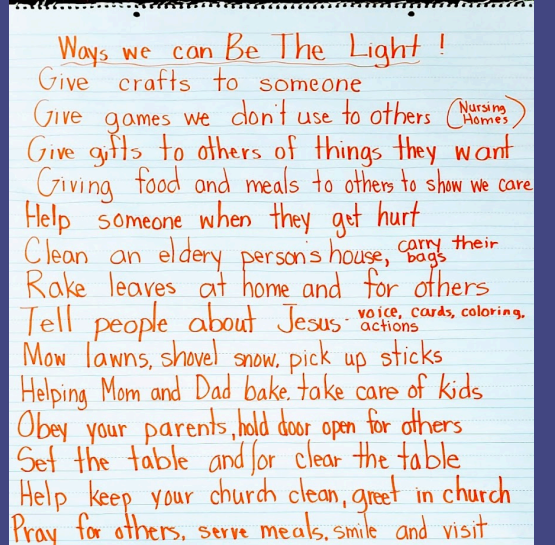 Ways we can Be The Light!
Give crafts to someone
Give games we don't use to others (Nursing Homes)
Give gifts to others of things they want
Giving food and meals to others to show we care
Help someone when they get hurt
Clean an eldery person's house, carry their bags
Rake leaves at home and for others
Tell people about Jesus - voice, cards, coloring, actions
Mow lawns, shovel snow, pick up sticks
Helping Mom and Dad bake, take care of kids
Obey your parents, hold door open for others
Set the table and/or clear the table
Help keep your church clean, greet in church
Pray for others, serve meals, smile and visit